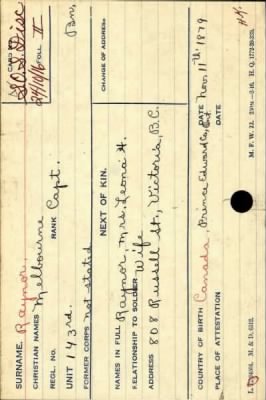 SURNAME. Raynor,
CARD NO.
CHRISTIAN NAMES Melbourne
S.O.S. Disc
24/10/16 FOLL. II
REGL. NO. RANK Capt.
UNIT 143rd. Bn,
FORMER CORPS not stated
NEXT OF KIN.
CHANGE OF ADDRESS
NAMES IN FULL Raynor, Mrs. Leona H.
RELATIONSHIP TO SOLDIER Wife
ADDRESS 808 Russell St., Victoria, B.C.
COUNTRY OF BIRTH Canada, Prince Edward Co, Ont. DATE Nov. 11th 1879
PLACE OF ATTESTATION DATE
M. & D. 6512. M. F. W. 22. H. Q. 1772-39-339.